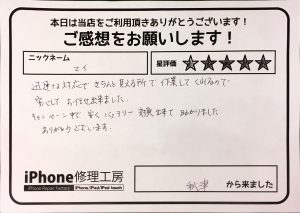 本日は当店をご利用頂きありがとうございます！
ご感想をお願いします！
ニックネーム
マイ
星評価
迅速な対応で きちんと見える所で 作業してくれるので
安心して お任せ出来ました
キャンペーン中で 安く バッテリー 交換出来て 助かりました
ありがとうございます。
iPhone修理工房
iPhone Repair Factory
iPhone/iPad/iPod touch
秋津
から来ました